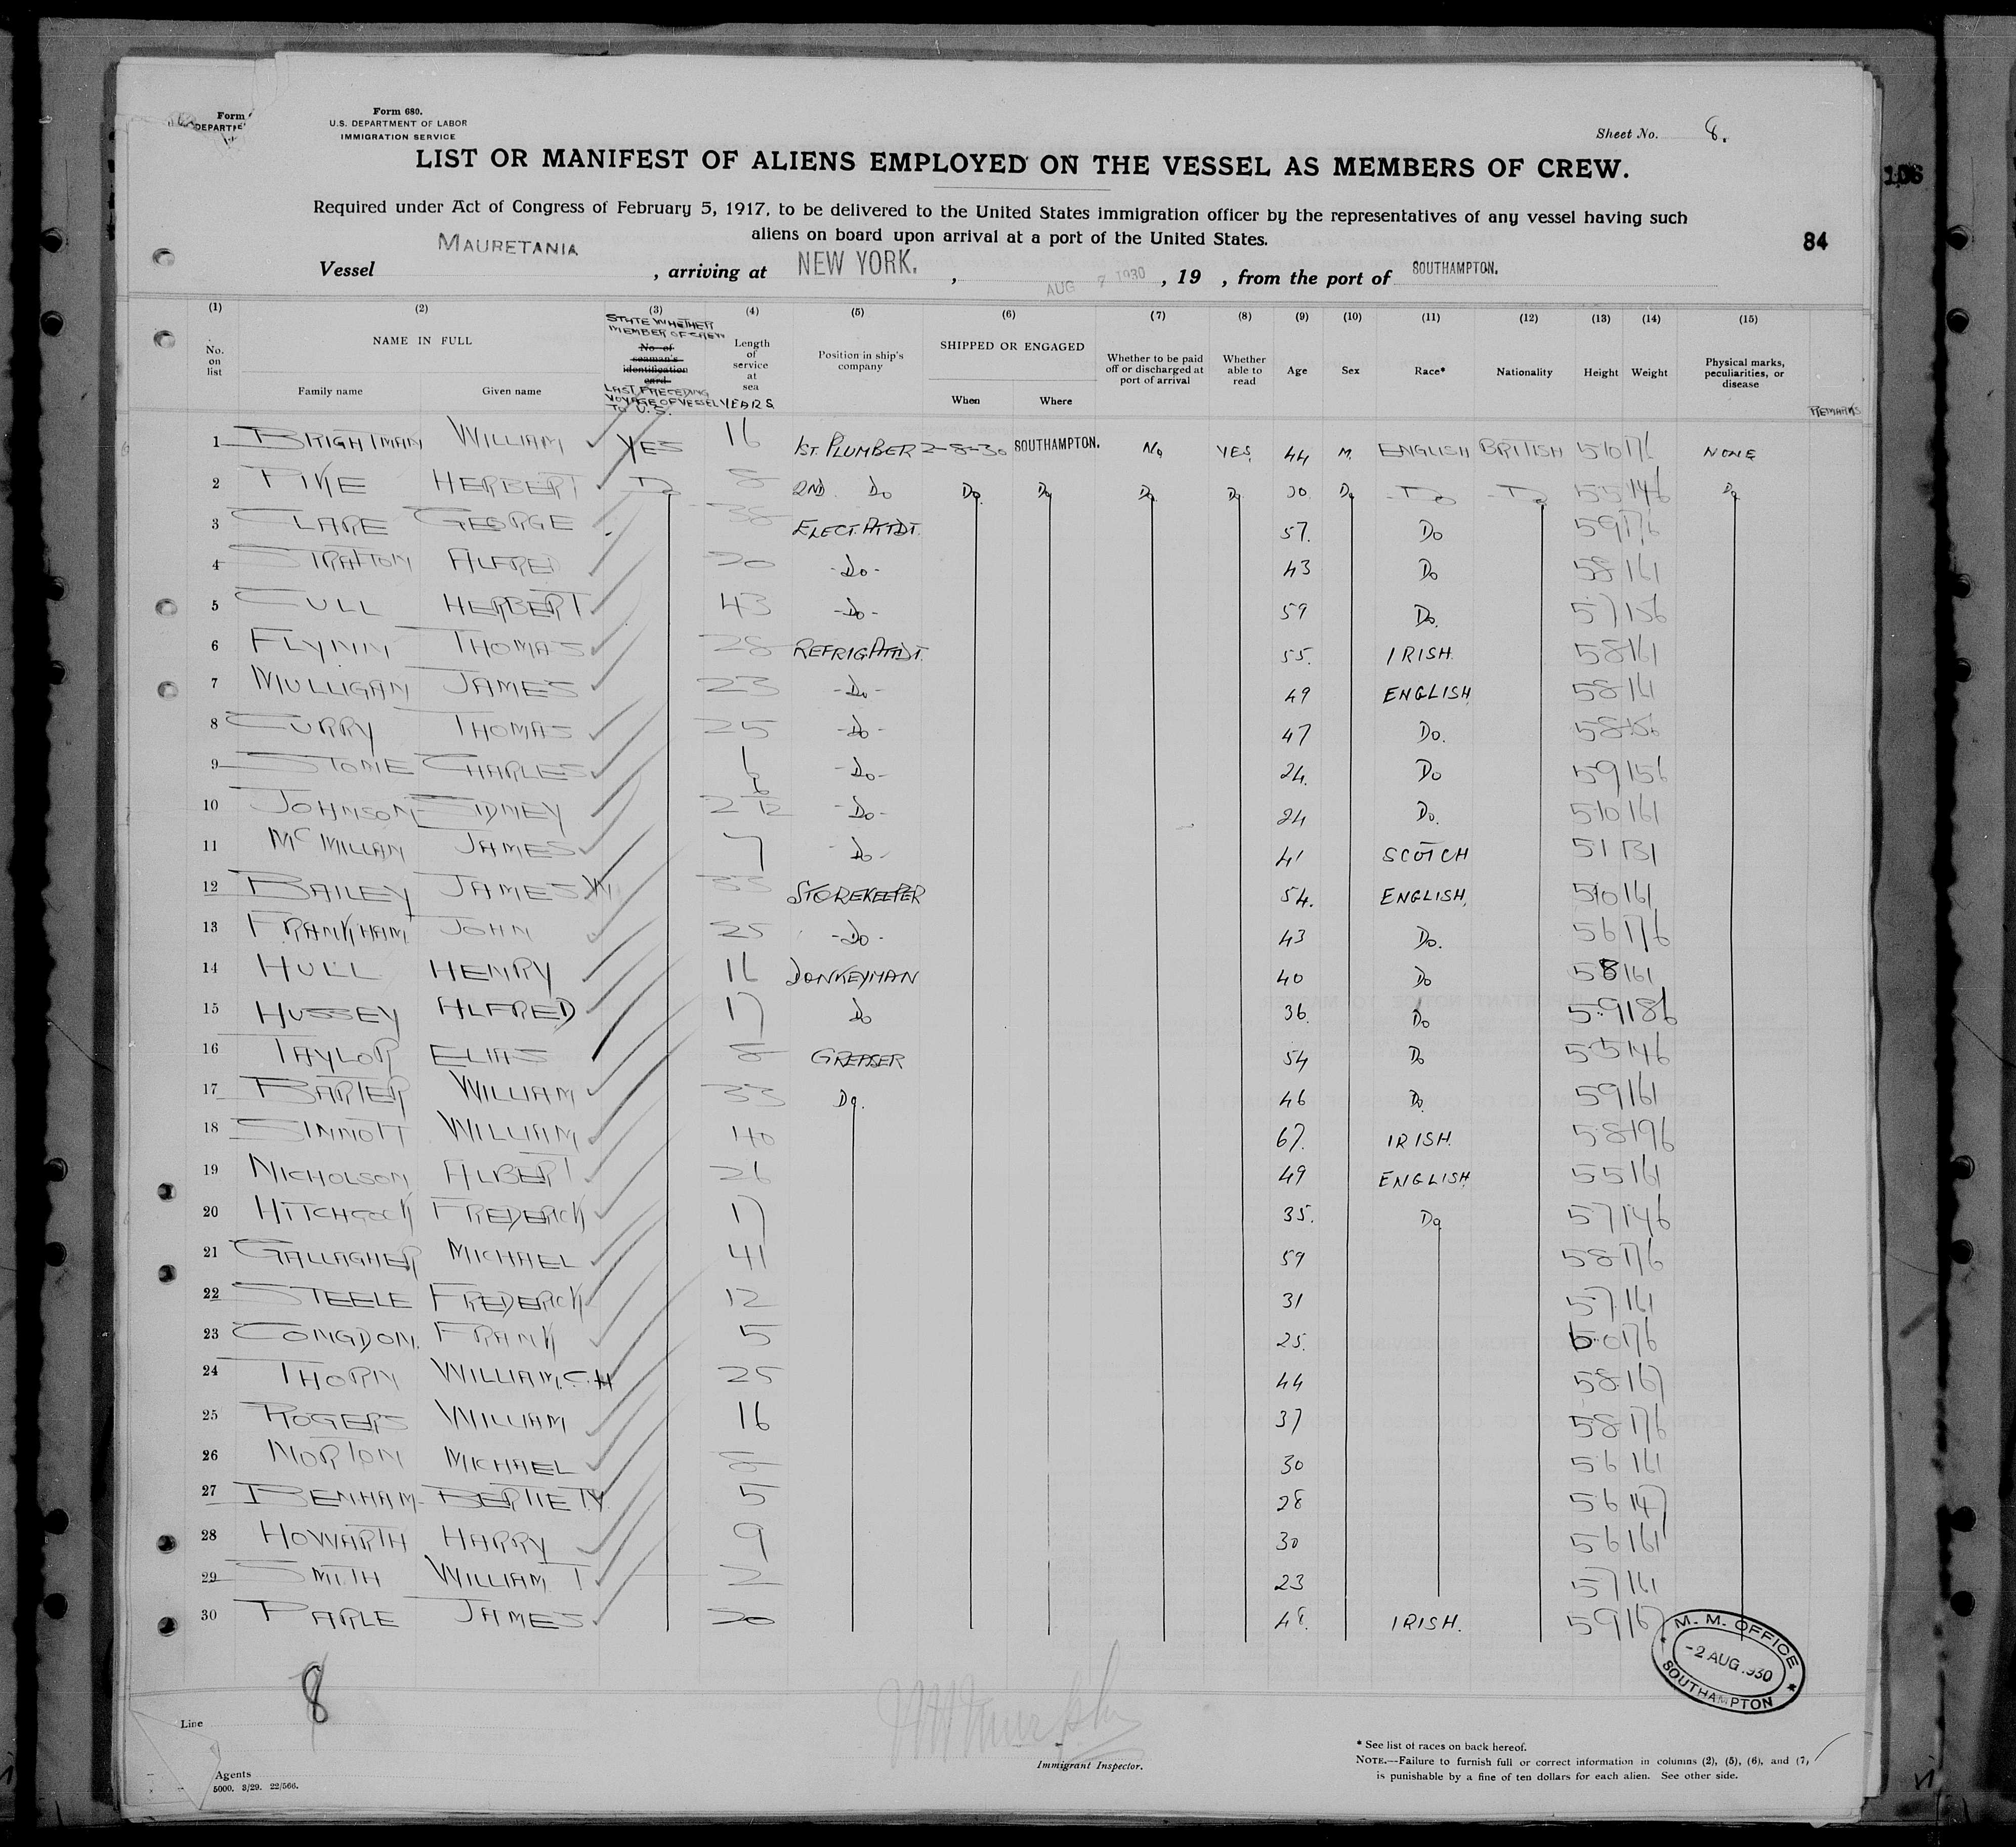 Form 680.
U.S. DEPARTMENT OF LABOR
IMMIGRATION SERVICE
Sheet No. 8.
LIST OR MANIFEST OF ALIENS EMPLOYED ON THE VESSEL AS MEMBERS OF CREW.
Required under Act of Congress of February 5, 1917, to be delivered to the United States immigration officer by the representatives of any vessel having such
aliens on board upon arrival at a port of the United States.
84
Vessel MAURETANIA, arriving at NEW YORK., AUG 7 1930, 19 , from the port of SOUTHAMPTON.
(1) (2) (3) (4) (5) (6) (7) (8) (9) (10) (11) (12) (13) (14) (15)
No. on list
NAME IN FULL
Family name Given name
STATE WHETHER MEMBER OF CREW
No. of seaman's identification card
LAST PRECEDING VOYAGE OF VESSEL TO U.S.
Length of service at sea YEARS
Position in ship's company
SHIPPED OR ENGAGED
When Where
Whether to be paid off or discharged at port of arrival
Whether able to read
Age
Sex
Race*
Nationality
Height
Weight
Physical marks, peculiarities, or disease
REMARKS
1 BRIGHTMAN WILLIAM YES 16 1ST. PLUMBER 2-8-30 SOUTHAMPTON. No YES 44 M. ENGLISH BRITISH 510 176 NONE
2 PIKE HERBERT Do 8 2ND. Do Do Do Do Do 30. Do Do Do 55 146 Do
3 CLARE GEORGE 38 ELECT. ATTDT. 57. Do 59 176
4 STRATTON ALFRED 20 -Do- 43 Do 58 161
5 CULL HERBERT 43 -Do- 59 Do. 57 156
6 FLYNN THOMAS 28 REFRIG ATTDT. 55. IRISH. 58 161
7 MULLIGAN JAMES 23 -Do- 49 ENGLISH 58 161
8 CURRY THOMAS 25 -Do- 47 Do. 58 156
9 STONE CHARLES -Do- 24. Do 59 156
10 JOHNSON SIDNEY 2 6/12 -Do- 24 Do. 510 161
11 McMILLAN JAMES 7 -Do- 41 SCOTCH 51 131
12 BAILEY JAMES W 33 STOREKEEPER 54. ENGLISH. 510 161
13 FRANKHAM JOHN 25 -Do- 43 Do. 56 176
14 HULL HENRY 16 DONKEYMAN 40 Do 58 161
15 HUSSEY ALFRED 17 Do 36. Do 59 186
16 TAYLOR ELIAS 8 GREASER 54 Do 55 146
17 BARTER WILLIAM 33 Do. 46 Do 59 161
18 SINNOTT WILLIAM 40 67. IRISH. 58 196
19 NICHOLSON ALBERT 26 49 ENGLISH 55 161
20 HITCHCOCK FREDERICK 17 35. Do 57 146
21 GALLAGHER MICHAEL 41 59 58 176
22 STEELE FREDERICK 12 31 57 161
23 CONGDON. FRANK 5 25. 60 176
24 THORN WILLIAM. C.H 25 44 58 167
25 ROGERS WILLIAM 16 37 58 176
26 NORTON MICHAEL 8 30 56 161
27 BENHAM BERTIE T.V. 5 28 56 147
28 HOWARTH HARRY 9 30 56 161
29 SMITH WILLIAM T 2 23 57 161
30 PARLE JAMES 20 48. IRISH. 59 167
M. M. OFFICE
-2 AUG 1930
SOUTHAMPTON
8
Line
Agents
5000. 3/29. 22/566.
Immigrant Inspector.
* See list of races on back hereof.
NOTE.—Failure to furnish full or correct information in columns (2), (5), (6), and (7,
is punishable by a fine of ten dollars for each alien. See other side.